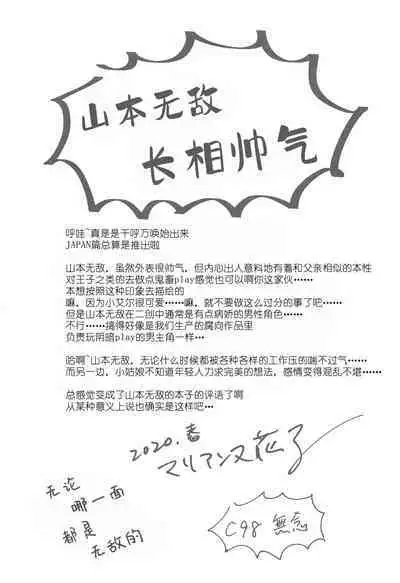 山本无敌
长相帅气
呼哇~真是是千呼万唤始出来
JAPAN篇总算是推出啦
山本无敌，虽然外表很帅气，但内心出人意料地有着和父亲相似的本性
对王子之类的去做点鬼畜play感觉也可以啊你这家伙…
本想按照这种印象去描绘的
嘛，因为小艾尔很可爱……嘛，就不要做这么过分的事了吧……
但是山本无敌在二创中通常是有点病娇的男性角色……
不行……搞得好像是我们生产的腐向作品里
负责玩阴暗play的男主角一样…
哈啊~山本无敌，无论什么时候都被各种各样的工作压的喘不过气……
而另一边，小姑娘不知道年轻人力求完美的想法，感情变得混乱不堪……
总感觉变成了山本无敌的本子的评语了啊
从某种意义上说也确实是这样吧…
2020.春
マリアン又花子
无论
哪一面
都是
无敌的
C98 無念